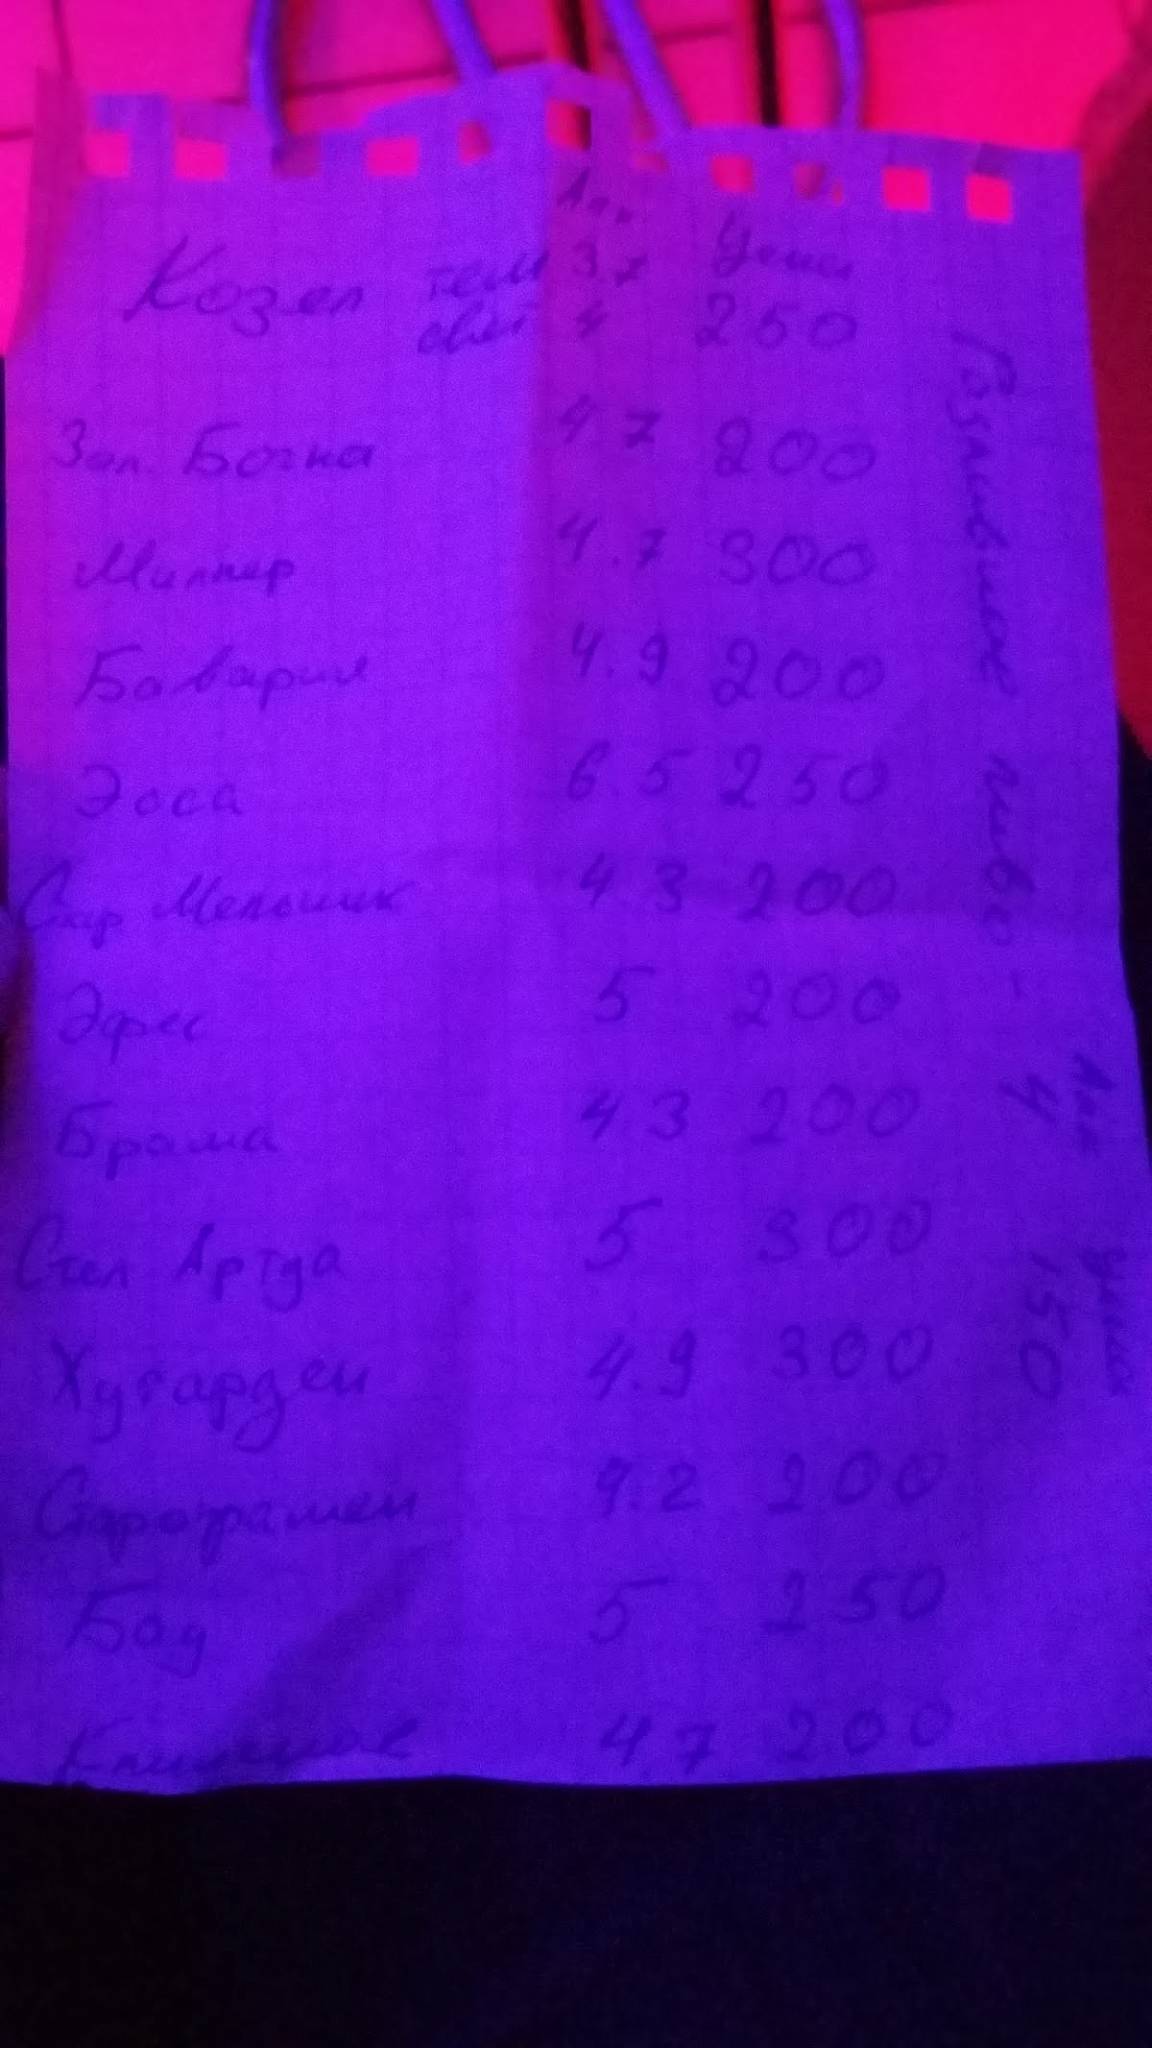 Алк Ценник
Козел темн 3.7
свет 4 250
Зол. Бочка 4.7 200
Миллер 4.7 300
Бавария 4.9 200
Эсса 6.5 250
Стар Мельник 4.3 200
Эфес 5 200
Брама 4.3 200
Стел Артуа 5 300
Хугарден 4.9 300
Старопрамен 4.2 200
Бад 5 250
Клинское 4.7 200
Разливное пиво -
Алк
4
150